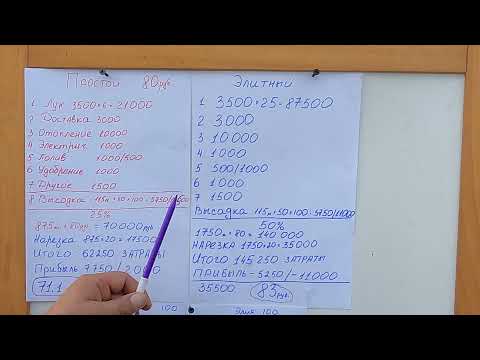 Простой 80 руб.
1 Лук 3500×6=21000
2 Доставка 3000
3 Отопление 10000
4 Электрич 1000
5 Полив 1000/500
6 Удобрение 1000
7 Другое 1500
8 Высадка 115м×50×100=5750/
25%
875м × 80руб = 70000руб
Нарезка 875×20=17500
Итого 62250 затраты
Прибыль 7750/2000
71.1
100
Элитный
1 3500×25=87500
2 3000
3 10000
4 1000
5 500/1000
6 1000
7 1500
Высадка 115м×50×100=5750/11000
50%
1750м × 80 = 140000
Нарезка 1750×20=35000
Итого 145250 затраты
Прибыль -5250/-11000
35500 83 руб.
100